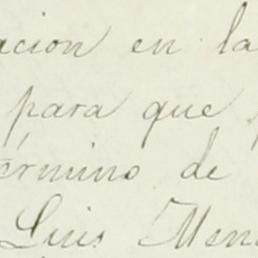 acion en la
para que
érmino de
Luis Men